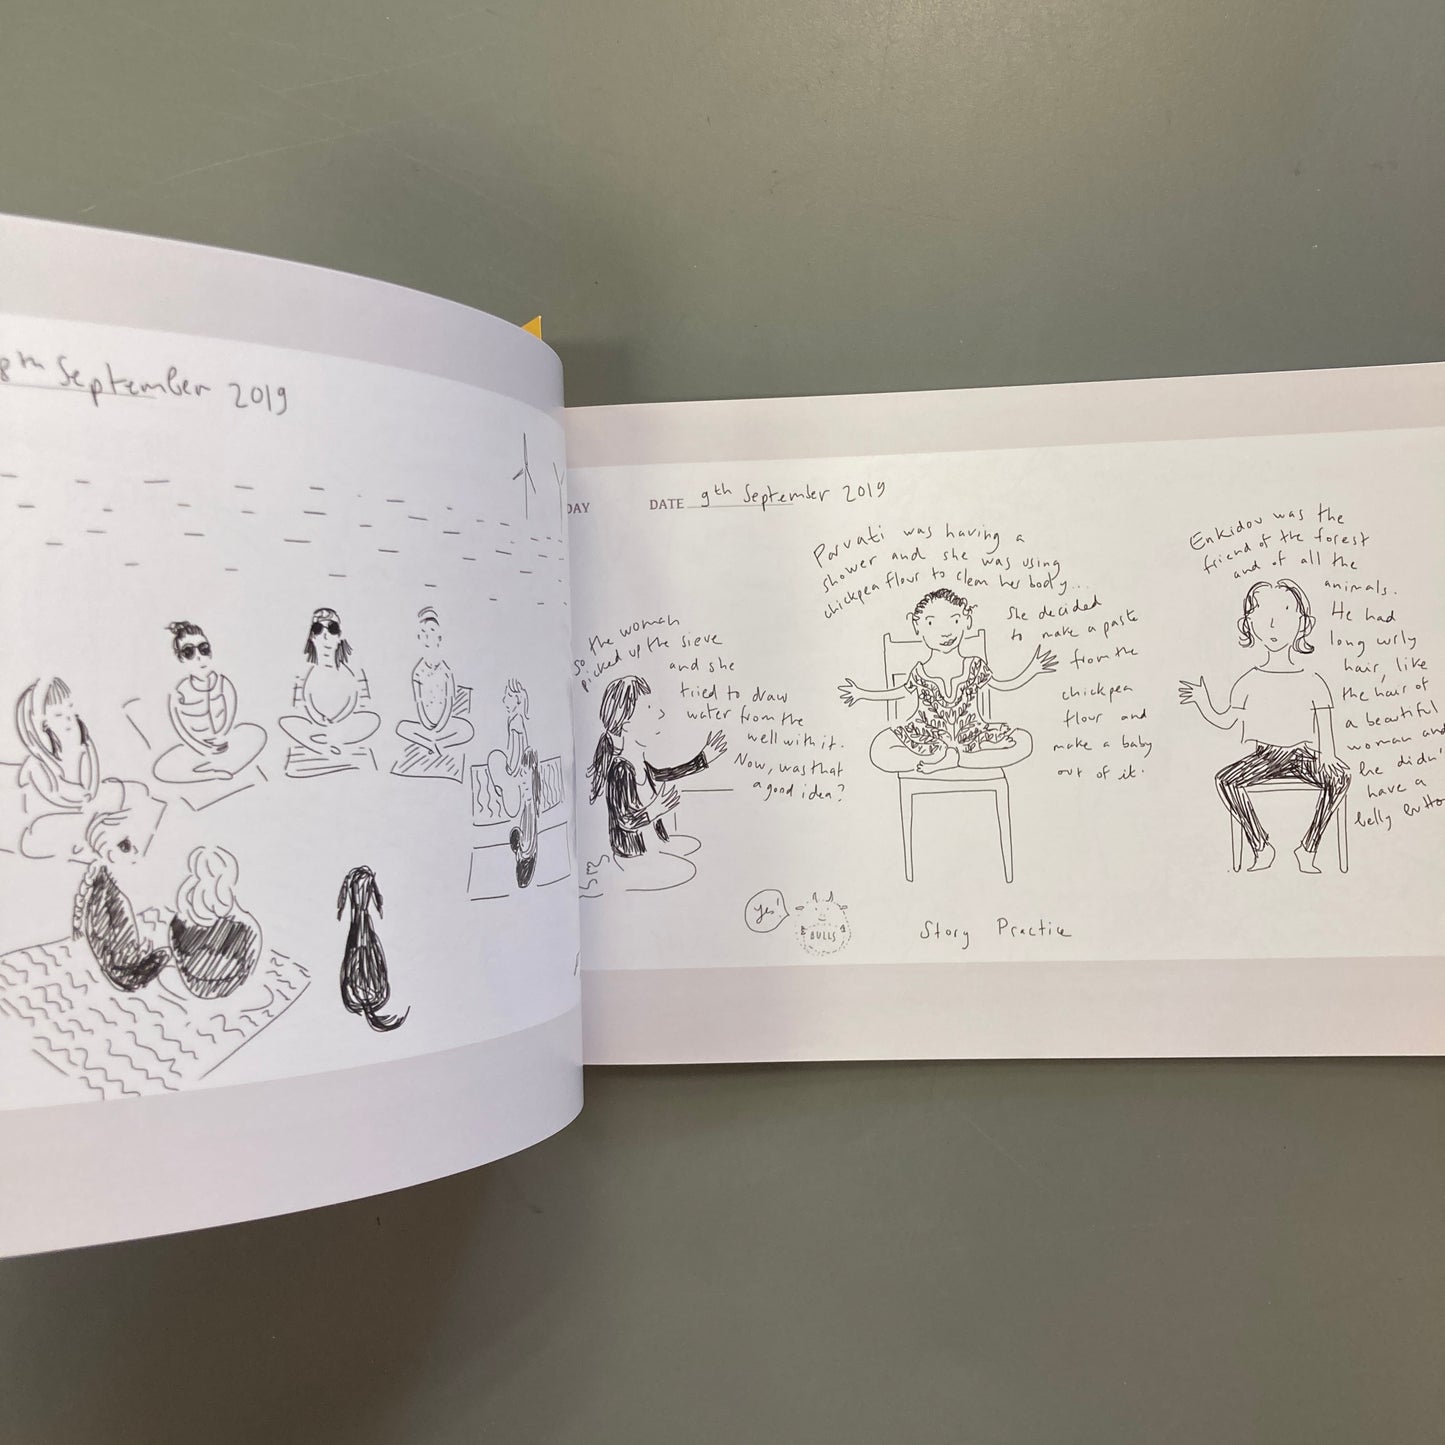 8th September 2019
DAY
DATE 9th September 2019
So the woman
picked up the sieve
and she
tried to draw
water from the
well with it.
Now, was that
a good idea?
Parvati was having a
shower and she was using
chickpea flour to clean her body...
She decided
to make a paste
from the
chickpea
flour and
make a baby
out of it.
Enkidou was the
friend of the forest
and of all the
animals.
He had
long curly
hair, like
the hair of
a beautiful
woman and
he didn'
have a
belly butto
Yes!
BULLS
Story Practice